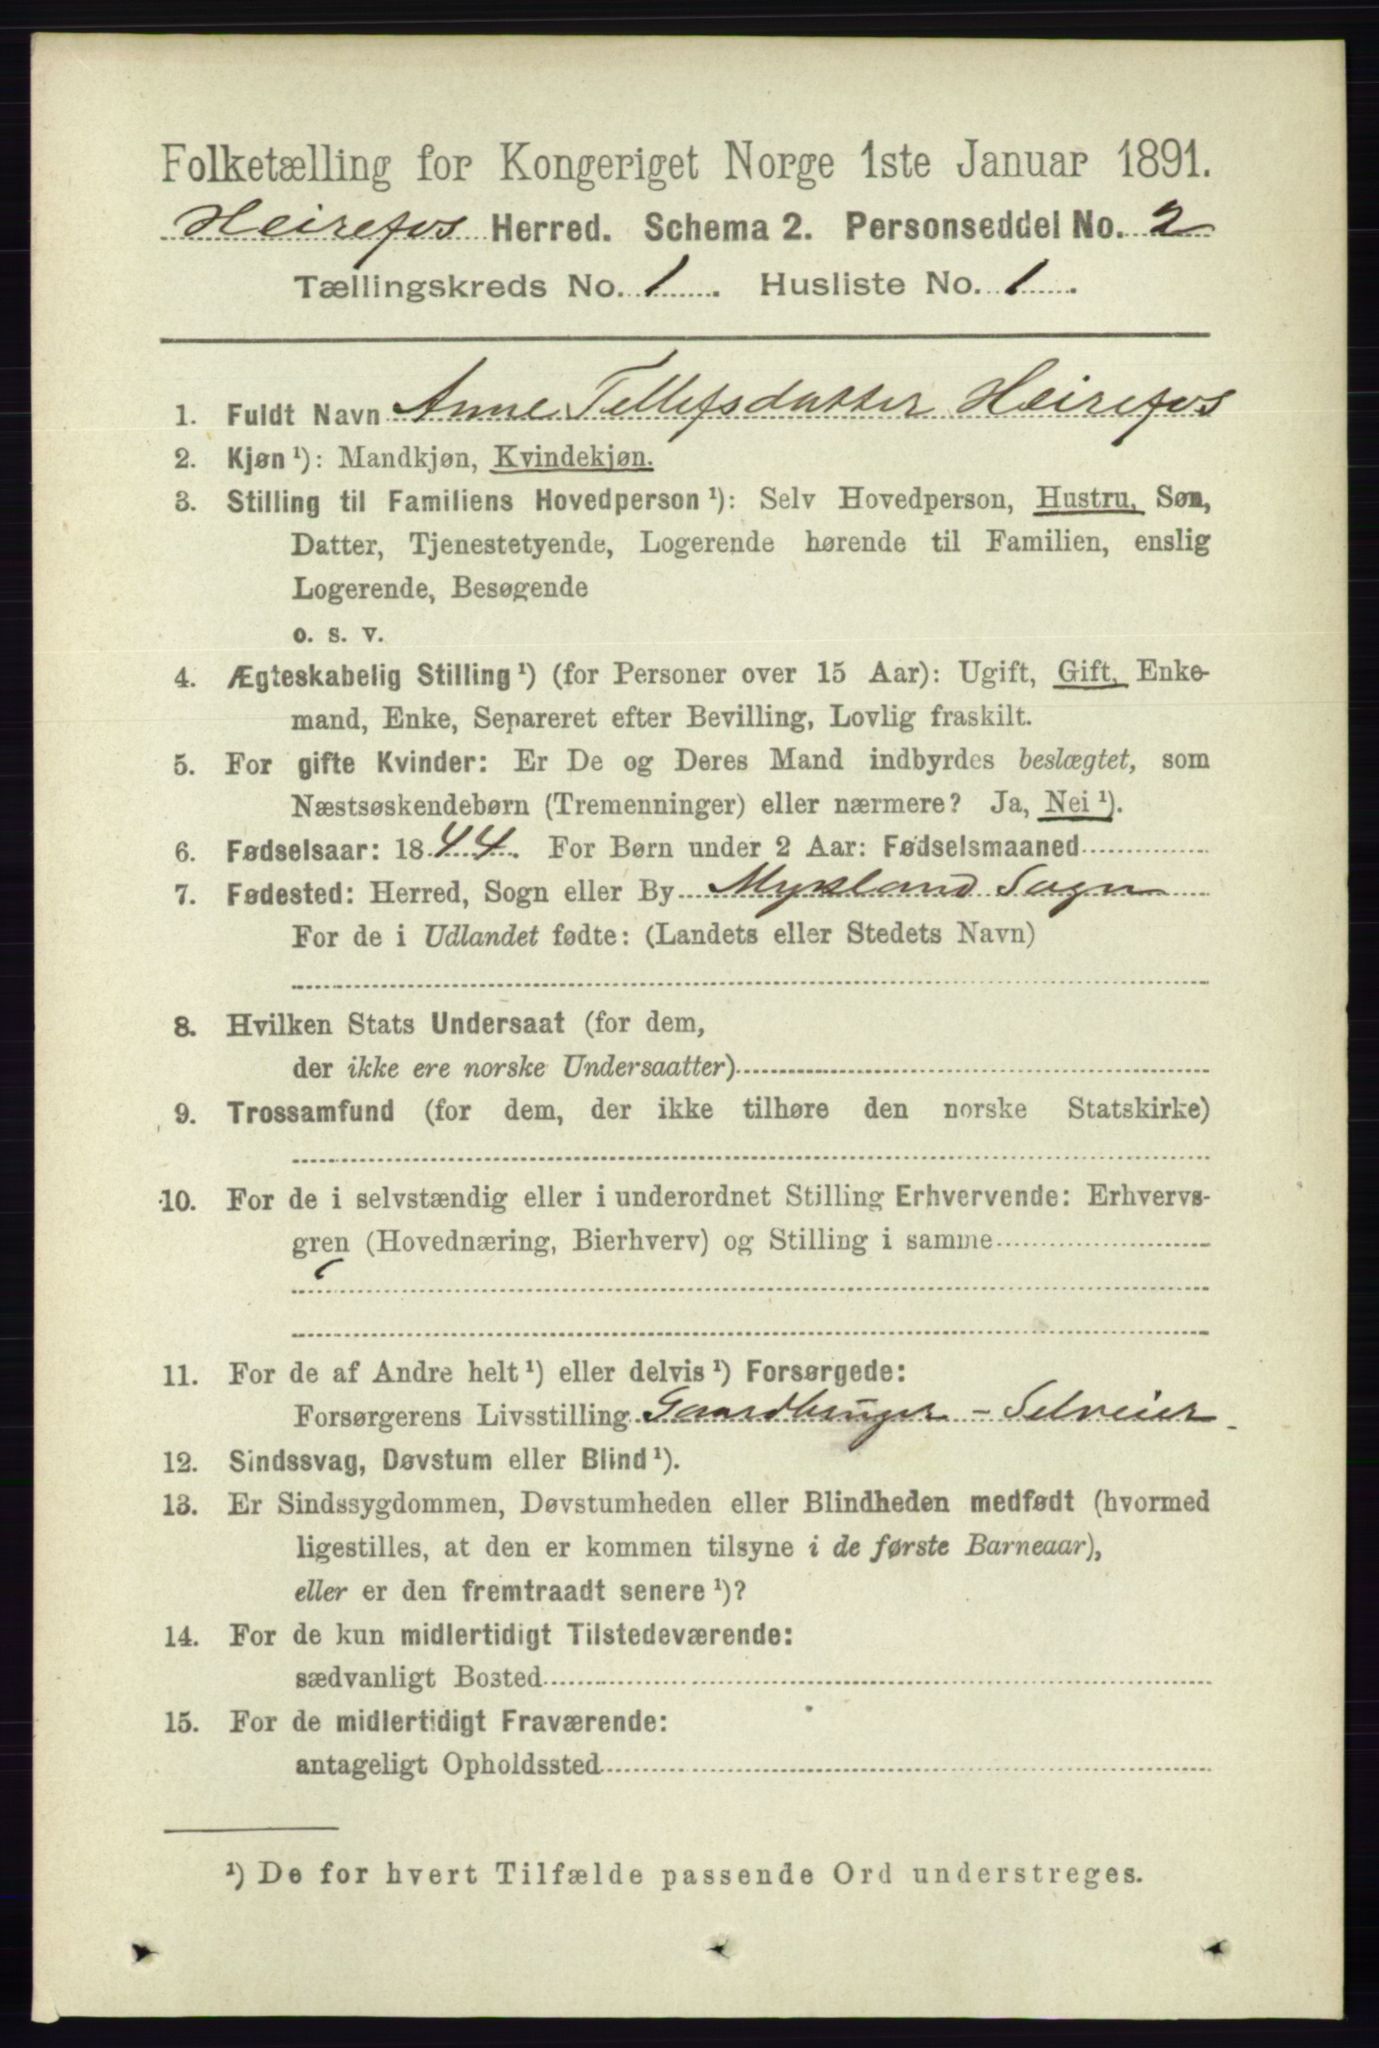 Folketælling for Kongeriget Norge 1ste Januar 1891.
Heirefos Herred. Schema 2. Personseddel No. 2
Tællingskreds No. 1. Husliste No. 1.
1. Fuldt Navn Anne Tellefsdatter Heirefos
2. Kjøn ¹): Mandkjøn, Kvindekjøn.
3. Stilling til Familiens Hovedperson ¹): Selv Hovedperson, Hustru, Søn,
Datter, Tjenestetyende, Logerende hørende til Familien, enslig
Logerende, Besøgende
o. s. v.
4. Ægteskabelig Stilling ¹) (for Personer over 15 Aar): Ugift, Gift, Enke-
mand, Enke, Separeret efter Bevilling, Lovlig fraskilt.
5. For gifte Kvinder: Er De og Deres Mand indbyrdes beslægtet, som
Næstsøskendebørn (Tremenninger) eller nærmere? Ja, Nei ¹).
6. Fødselsaar: 1844. For Børn under 2 Aar: Fødselsmaaned
7. Fødested: Herred, Sogn eller By Mykland Sogn
For de i Udlandet fødte: (Landets eller Stedets Navn)
8. Hvilken Stats Undersaat (for dem,
der ikke ere norske Undersaatter)
9. Trossamfund (for dem, der ikke tilhøre den norske Statskirke)
10. For de i selvstændig eller i underordnet Stilling Erhvervende: Erhvervs-
gren (Hovednæring, Bierhverv) og Stilling i samme
11. For de af Andre helt ¹) eller delvis ¹) Forsørgede:
Forsørgerens Livsstilling Gaardbruger - Selveier
12. Sindssvag, Døvstum eller Blind ¹).
13. Er Sindssygdommen, Døvstumheden eller Blindheden medfødt (hvormed
ligestilles, at den er kommen tilsyne i de første Barneaar),
eller er den fremtraadt senere ¹)?
14. For de kun midlertidigt Tilstedeværende:
sædvanligt Bosted
15. For de midlertidigt Fraværende:
antageligt Opholdssted
¹) De for hvert Tilfælde passende Ord understreges.